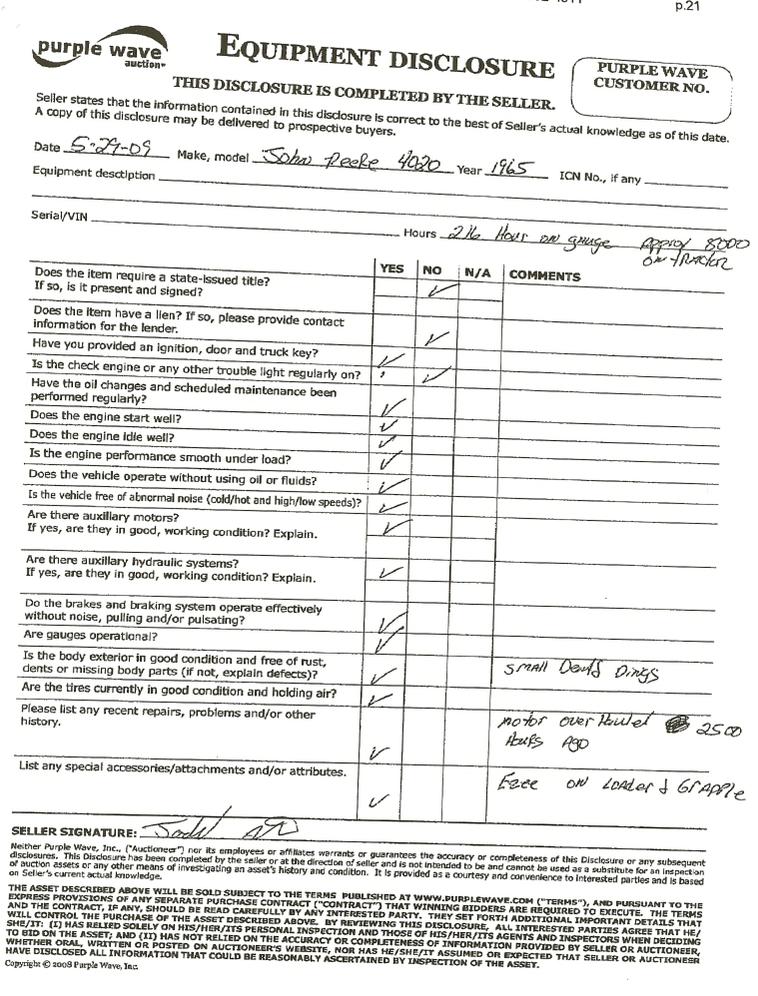 p.21
purple wave
auction
EQUIPMENT DISCLOSURE
PURPLE WAVE
CUSTOMER NO.
THIS DISCLOSURE IS COMPLETED BY THE SELLER.
Seller states that the information contained in this disclosure is correct to the best of Seller's actual knowledge as of this date.
A copy of this disclosure may be delivered to prospective buyers.
Date 5-29-09 Make, model John Deere 4020 Year 1965 ICN No., if any
Equipment description
Serial/VIN Hours 216 Hour on gauge Approx 8000
on tractor
YES NO N/A COMMENTS
Does the item require a state-issued title?
If so, is it present and signed?
Does the item have a lien? If so, please provide contact
information for the lender.
Have you provided an ignition, door and truck key?
Is the check engine or any other trouble light regularly on?
Have the oil changes and scheduled maintenance been
performed regularly?
Does the engine start well?
Does the engine idle well?
Is the engine performance smooth under load?
Does the vehicle operate without using oil or fluids?
Is the vehicle free of abnormal noise (cold/hot and high/low speeds)?
Are there auxillary motors?
If yes, are they in good, working condition? Explain.
Are there auxillary hydraulic systems?
If yes, are they in good, working condition? Explain.
Do the brakes and braking system operate effectively
without noise, pulling and/or pulsating?
Are gauges operational?
Is the body exterior in good condition and free of rust,
dents or missing body parts (if not, explain defects)? small Dents Dings
Are the tires currently in good condition and holding air?
Please list any recent repairs, problems and/or other
history.
motor over Hauled 2500
Hours Ago
List any special accessories/attachments and/or attributes.
on Loader & Grapple
SELLER SIGNATURE:
Neither Purple Wave, Inc., ("Auctioneer") nor its employees or affiliates warrants or guarantees the accuracy or completeness of this Disclosure or any subsequent
disclosures. This Disclosure has been completed by the seller or at the direction of seller and is not intended to and cannot be used as a substitute for an inspection
of auction assets or any other means of investigating an asset's history and condition. It is provided as a courtesy and convenience to interested parties and is based
on Seller's current actual knowledge.
THE ASSET DESCRIBED ABOVE WILL BE SOLD SUBJECT TO THE TERMS PUBLISHED AT WWW.PURPLEWAVE.COM ("TERMS"), AND PURSUANT TO THE
EXPRESS PROVISIONS OF ANY SEPARATE PURCHASE CONTRACT ("CONTRACT") THAT WINNING BIDDERS ARE REQUIRED TO EXECUTE. THE TERMS
AND THE CONTRACT, IF ANY, SHOULD BE READ CAREFULLY BY ANY INTERESTED PARTY. THEY SET FORTH ADDITIONAL IMPORTANT DETAILS THAT
WILL CONTROL THE PURCHASE OF THE ASSET DESCRIBED ABOVE. BY REVIEWING THIS DISCLOSURE, ALL INTERESTED PARTIES AGREE THAT HE/
SHE/IT: (I) HAS RELIED SOLELY ON HIS/HER/ITS PERSONAL INSPECTION AND THOSE OF HIS/HER/ITS AGENTS AND INSPECTORS WHEN DECIDING
TO BID ON THE ASSET; AND (II) HAS NOT RELIED ON THE ACCURACY OR COMPLETENESS OF INFORMATION PROVIDED BY SELLER OR AUCTIONEER,
WHETHER ORAL, WRITTEN OR POSTED ON AUCTIONEER'S WEBSITE, NOR HAS HE/SHE/IT ASSUMED OR EXPECTED THAT SELLER OR AUCTIONEER
HAVE DISCLOSED ALL INFORMATION THAT COULD BE REASONABLY ASCERTAINED BY INSPECTION OF THE ASSET.
Copyright © 2008 Purple Wave, Inc.